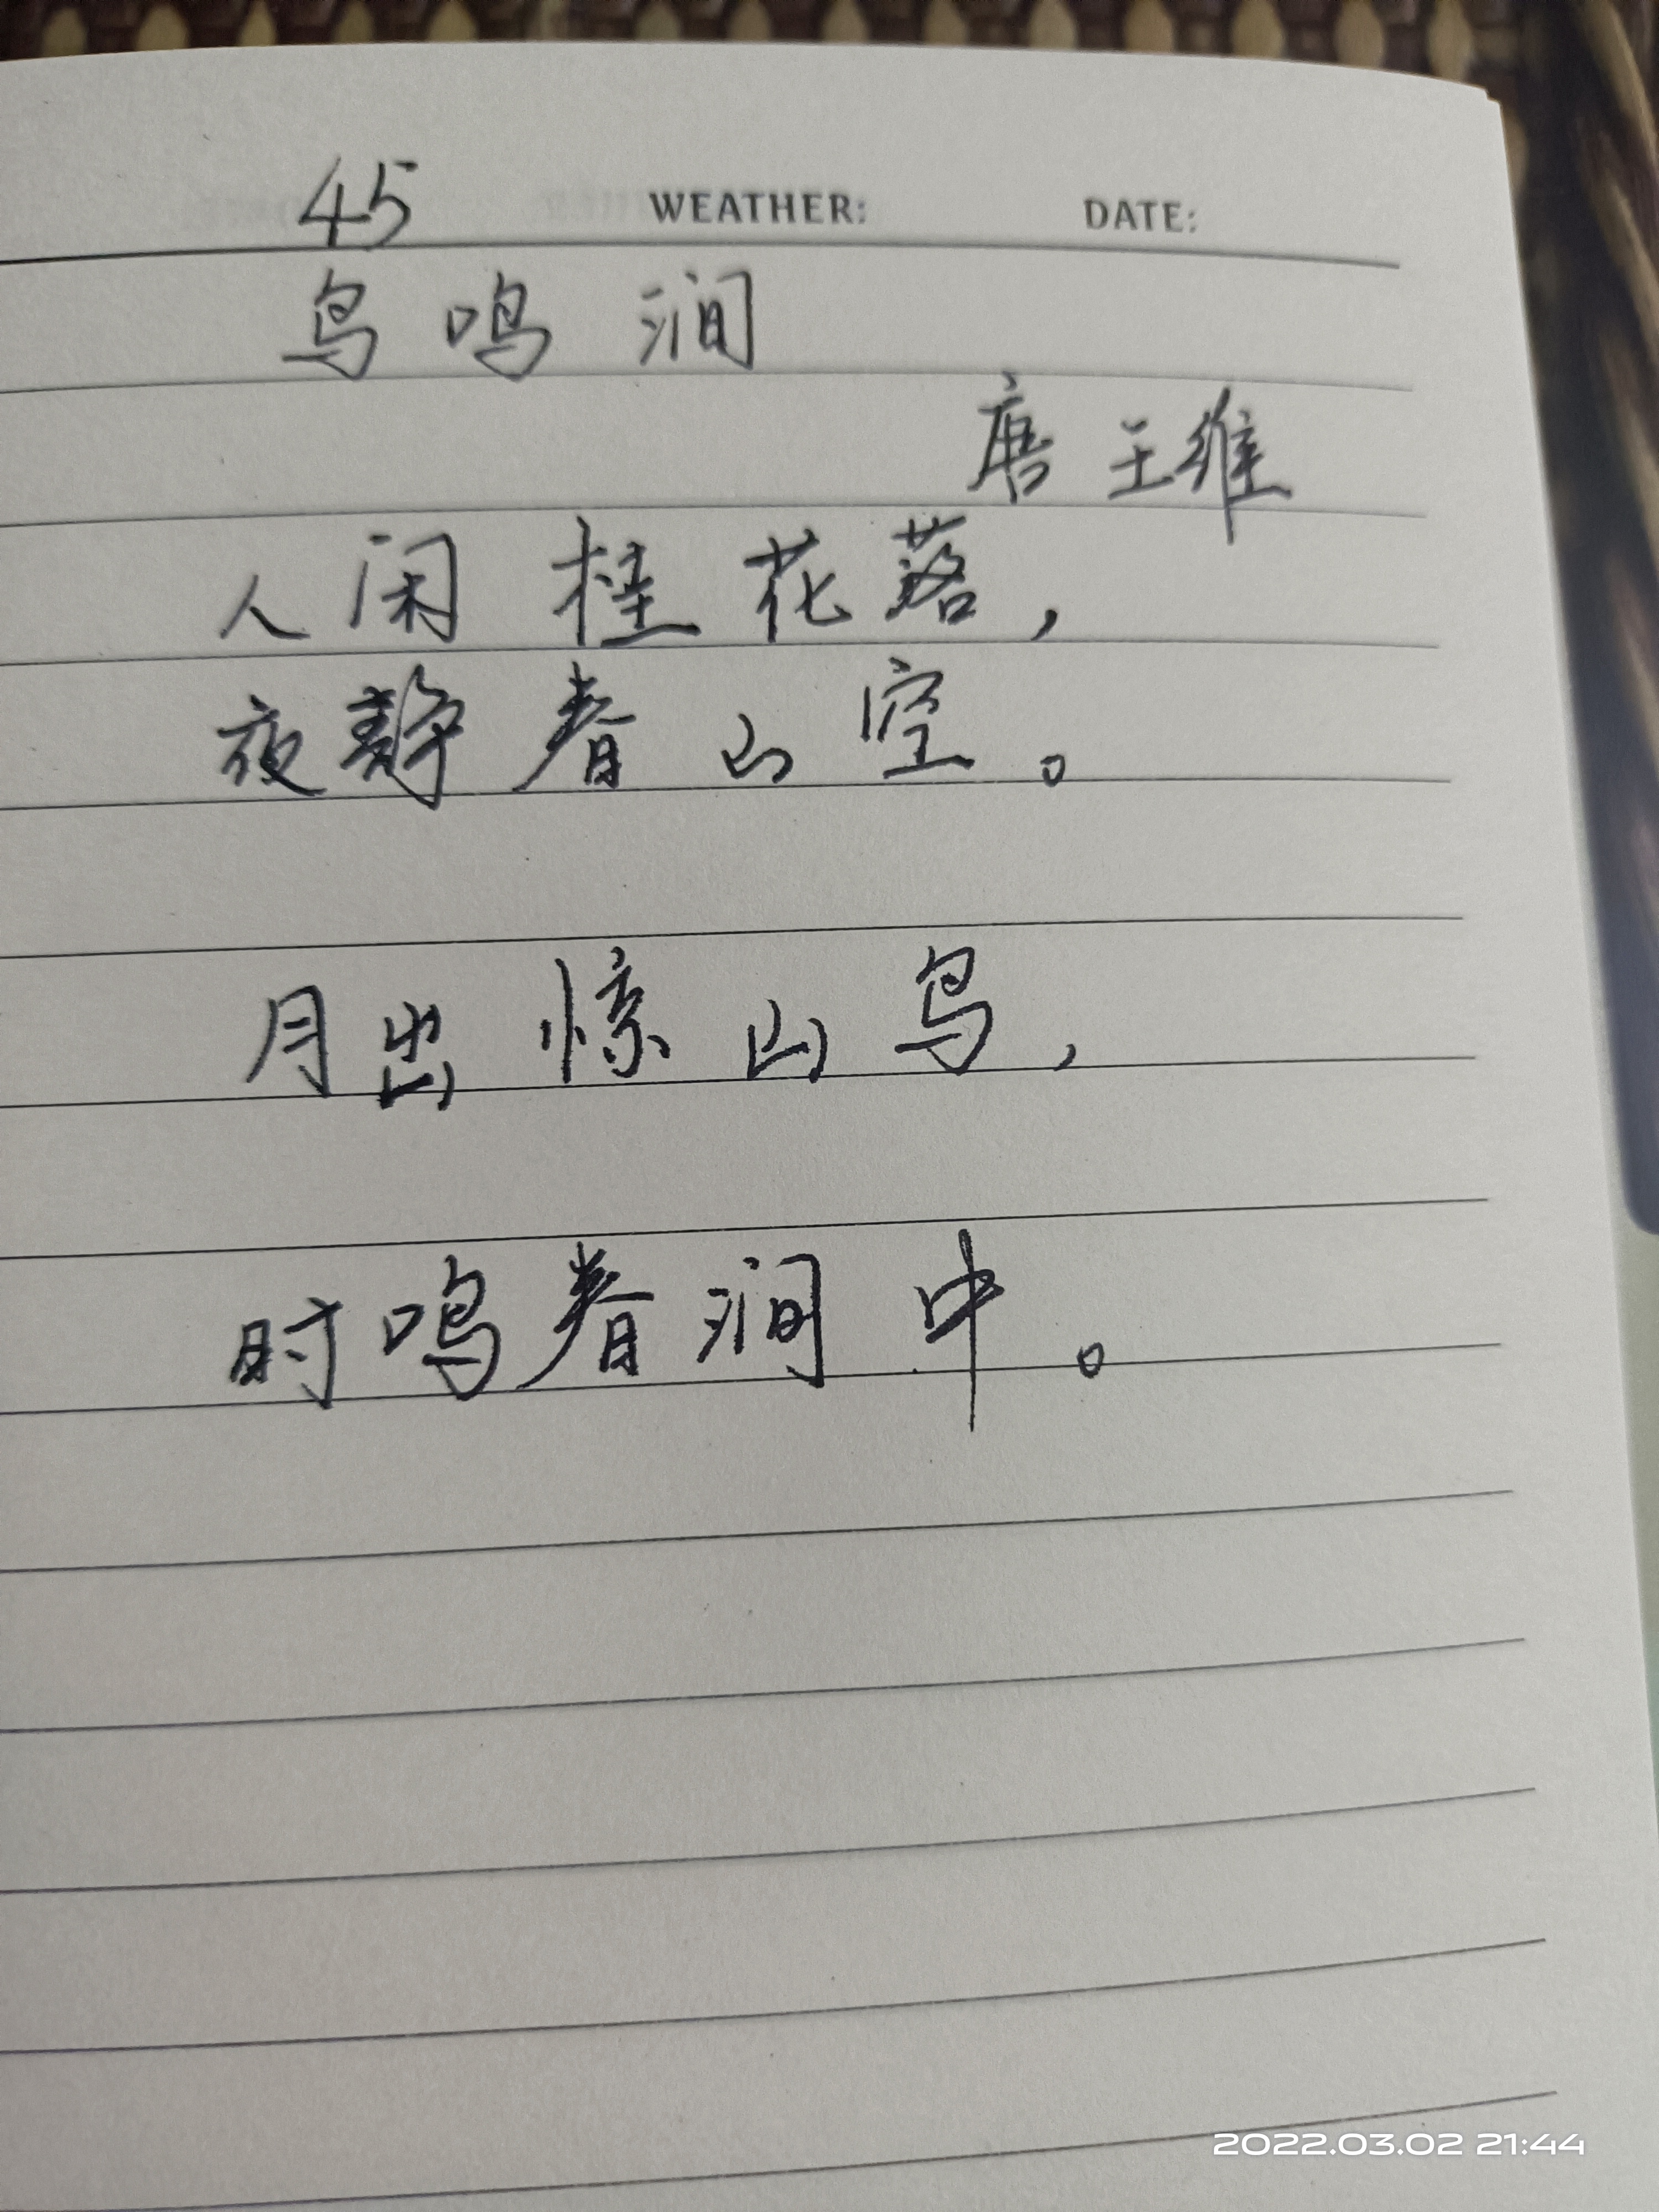 45 WEATHER: DATE:
鸟鸣涧
唐 王维
人闲桂花落，
夜静春山空。
月出惊山鸟，
时鸣春涧中。
2022.03.02 21:44